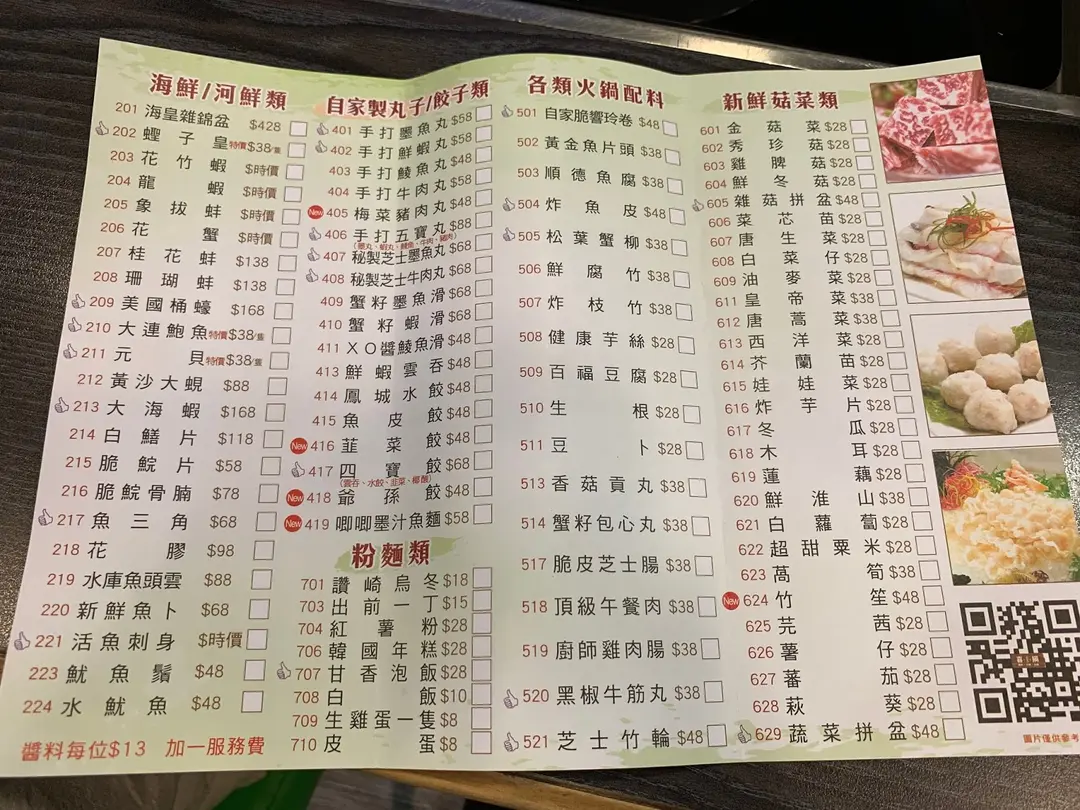 海鮮/河鮮類
201 海皇雜錦盆 $428
202 蟶子皇 特價$38/隻
203 花竹蝦 $時價
204 龍蝦 $時價
205 象拔蚌 $時價
206 花蟹 $時價
207 桂花蚌 $138
208 珊瑚蚌 $138
209 美國桶蠔 $168
210 大連鮑魚 特價$38/隻
211 元貝 特價$38/隻
212 黃沙大蜆 $88
213 大海蝦 $168
214 白鱔片 $118
215 脆鯇片 $58
216 脆鯇骨腩 $78
217 魚三角 $68
218 花膠 $98
219 水庫魚頭雲 $88
220 新鮮魚卜 $68
221 活魚刺身 $時價
223 魷魚鬚 $48
224 水魷魚 $48
醬料每位$13 加一服務費
自家製丸子/餃子類
401 手打墨魚丸 $58
402 手打鮮蝦丸 $58
403 手打鯪魚丸 $48
404 手打牛肉丸 $58
New 405 梅菜豬肉丸 $48
406 手打五寶丸 $88
(墨丸、蝦丸、鯪魚、牛肉、豬肉)
407 秘製芝士墨魚丸 $68
408 秘製芝士牛肉丸 $68
409 蟹籽墨魚滑 $68
410 蟹籽蝦滑 $68
411 XO醬鯪魚滑 $48
413 鮮蝦雲吞 $48
414 鳳城水餃 $48
415 魚皮餃 $48
New 416 韮菜餃 $48
417 四寶餃 $68
New 418 爺孫餃 $48
New 419 唧唧墨汁魚麵 $58
粉麵類
701 讚崎烏冬 $18
703 出前一丁 $15
704 紅薯粉 $28
706 韓國年糕 $28
707 甘香泡飯 $28
708 白飯 $10
709 生雞蛋一隻 $8
710 皮蛋 $8
各類火鍋配料
501 自家脆響玲卷 $48
502 黃金魚片頭 $38
503 順德魚腐 $38
504 炸魚皮 $48
505 松葉蟹柳 $38
506 鮮腐竹 $38
507 炸枝竹 $38
508 健康芋絲 $28
509 百福豆腐 $28
510 生根 $28
511 豆卜 $28
513 香菇貢丸 $38
514 蟹籽包心丸 $38
517 脆皮芝士腸 $38
518 頂級午餐肉 $38
519 廚師雞肉腸 $38
520 黑椒牛筋丸 $38
521 芝士竹輪 $48
新鮮菇菜類
601 金菇菜 $28
602 秀珍菇 $28
603 雞脾菇 $28
604 鮮冬菇 $28
605 雜菇拼盆 $48
606 菜芯苗 $28
607 唐生菜 $28
608 白菜仔 $28
609 油麥菜 $28
611 皇帝菜 $38
612 唐蒿菜 $38
613 西洋菜 $28
614 芥蘭苗 $28
615 娃娃菜 $28
616 炸芋片 $28
617 冬瓜 $28
618 木耳 $28
619 蓮藕 $28
620 鮮淮山 $38
621 白蘿蔔 $28
622 超甜粟米 $28
623 萵筍 $38
New 624 竹笙 $48
625 芫茜 $28
626 薯仔 $28
627 蕃茄 $28
628 萩葵 $28
629 蔬菜拼盆 $48
圖片僅供參考